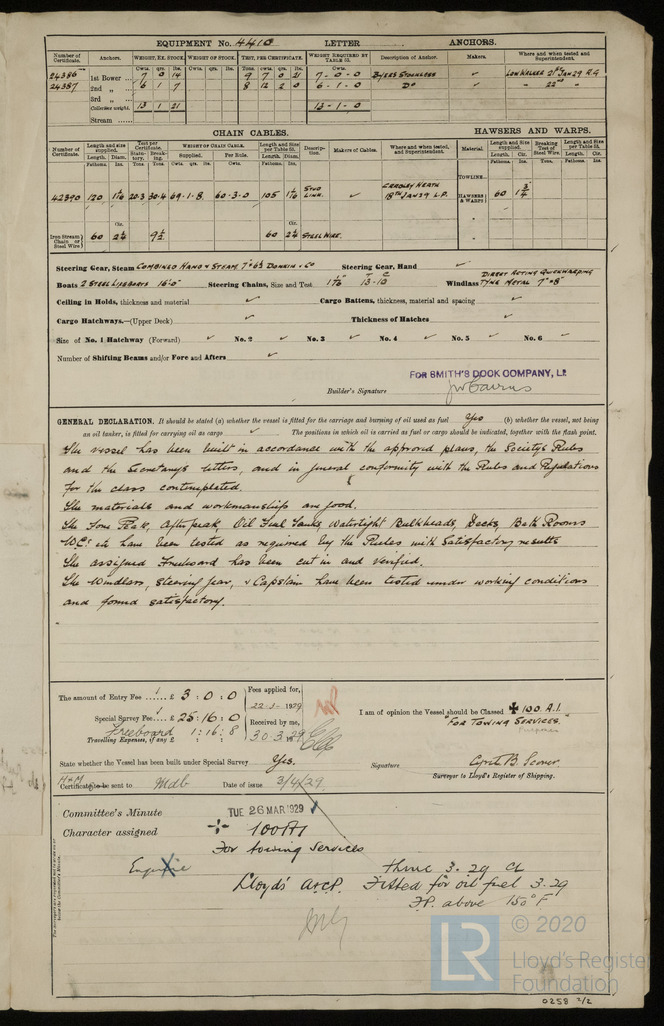 EQUIPMENT No. 4410 LETTER ANCHORS.
Number of Certificate. Anchors. WEIGHT, EX. STOCK. WEIGHT OF STOCK. TEST, PER CERTIFICATE. WEIGHT REQUIRED BY TABLE 53. Description of Anchor. Makers. Where and when tested and Superintendent.
Cwts. qrs. lbs. Cwts. qrs. lbs. Tons. cwts. qrs. lbs. Cwts.
24386 1st Bower ... 7 0 14 9 7 0 21 7-0-0 Byers Stockless ✓ Low Walker 21st Jan 29 R.G
24387 2nd „ ... 6 1 7 8 12 2 0 6-1-0 Do ✓ " 22nd "
3rd „ ...
Collective weight. 13 1 21 13-1-0
Stream ...
CHAIN CABLES. HAWSERS AND WARPS.
Number of Certificate. Length and size supplied. Test per Certificate. WEIGHT OF CHAIN CABLE. Length and Size per Table 53. Description. Makers of Cables. Where and when tested, and Superintendent. Material Length and Size supplied. Breaking Test of Steel Wire. Length and Size per Table 53.
Length. Diam. Statutory. Breaking. Supplied. Per Rule. Length. Diam. Length. Cir. Length. Cir.
Fathoms. Ins. Tons. Tons. Cwts. qrs. lbs. Cwts. qrs. lbs. Fathoms. Ins. Fathoms. Ins. Tons. Fathoms. Ins.
TOWLINE...
42390 120 1 1/16 20.3 30.4 69-1-8 60-3-0 105 1 1/16 Stud Link. ✓ Cradley Heath 18th Jan 29 L.P. HAWSERS & WARPS 60 1 3/4
Cir. Cir.
Iron Stream Chain or Steel Wire 60 2 1/4 9 1/2 60 2 1/4 Steel Wire.
Steering Gear, Steam Combined Hand & Steam 7" 6 1/2 Donkin & Co Steering Gear, Hand ✓
Boats 2 Steel Lifeboats 16'0" Steering Chains, Size and Test 1 1/16" 13-10 Windlass Direct Acting Quick Warping Tyne Metal 7" × 8"
Ceiling in Holds, thickness and material ✓ Cargo Battens, thickness, material and spacing ✓
Cargo Hatchways.—(Upper Deck) ✓ Thickness of Hatches ✓
Size of No. 1 Hatchway (Forward) ✓ No. 2 ✓ No. 3 ✓ No. 4 ✓ No. 5 ✓ No. 6 ✓
Number of Shifting Beams and/or Fore and Afters ✓
FOR SMITH'S DOCK COMPANY, LD.
Builder's Signature JW Cairns
GENERAL DECLARATION. It should be stated (a) whether the vessel is fitted for the carriage and burning of oil used as fuel Yes (b) whether the vessel, not being
an oil tanker, is fitted for carrying oil as cargo ✓ The positions in which oil is carried as fuel or cargo should be indicated, together with the flash point.
The vessel has been built in accordance with the approved plans, the Society's Rules
and the Secretary's letters, and in general conformity with the Rules and Regulations
for the class contemplated.
The materials and workmanship are good.
The Fore Peak, Afterpeak, Oil Fuel Tanks, Watertight Bulkheads, Decks, Bath Rooms
W.C.s etc have been tested as required by the Rules with satisfactory results
The assigned Freeboard has been cut in and verified.
The Windlass, steering gear, & Capstan have been tested under working conditions
and found satisfactory.
The amount of Entry Fee ...... £ 3 : 0 : 0 Fees applied for, 22-3-1929
Special Survey Fee .... £ 25 : 16 : 0 Received by me, 30.3.1929
Freeboard 1 : 16 : 8
Travelling Expenses, if any £ : :
I am of opinion the Vessel should be Classed ✠ 100 A.1.
"For Towing Services."
State whether the Vessel has been built under Special Survey Yes. Signature Cyril B
Surveyor to Lloyd's Register of Shipping.
Certificate to be sent to Mdb Date of issue 3/4/29.
Committee's Minute TUE 26 MAR 1929
Character assigned ✠ 100A1
For towing services
Lloyd's A&CP. Fitted for oil fuel 3.29
F.P. above 150°F
LR
© 2020
Lloyd's Register
Foundation
0258 2/2